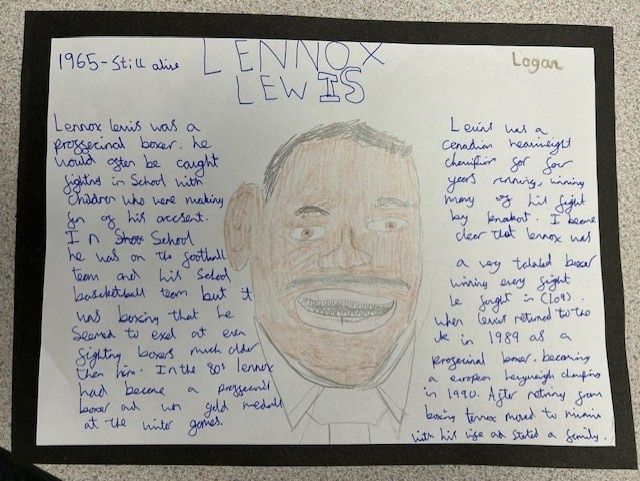 1965-Still alive
LENNOX
LEWIS
Logan
Lennox lewis was a
proffecinal boxer. he
would often be caught
fighting in School with
children who were making
fun of his accsent.
In School
he was on the football
team and his School
basketball team but it
was boxing that he
Seemed to exel at even
fighting boxers much older
then him. In the 80s lennox
had became a proffecinil
boxer and won gold medals
at the winter games.
Lewis was a
Canadian heavweight
champion for four
years running, winning
many of his fight
by knockout. I became
clear that lennox was
a very talented boxer
winning every fight
he fought in
when lewis returned to the
Uk in 1989 as a
profecinal boxer. becoming
a european heavyweigh champion
in 1990. After retiring from
boxing lennox moved to miami
with his wife and started a family.